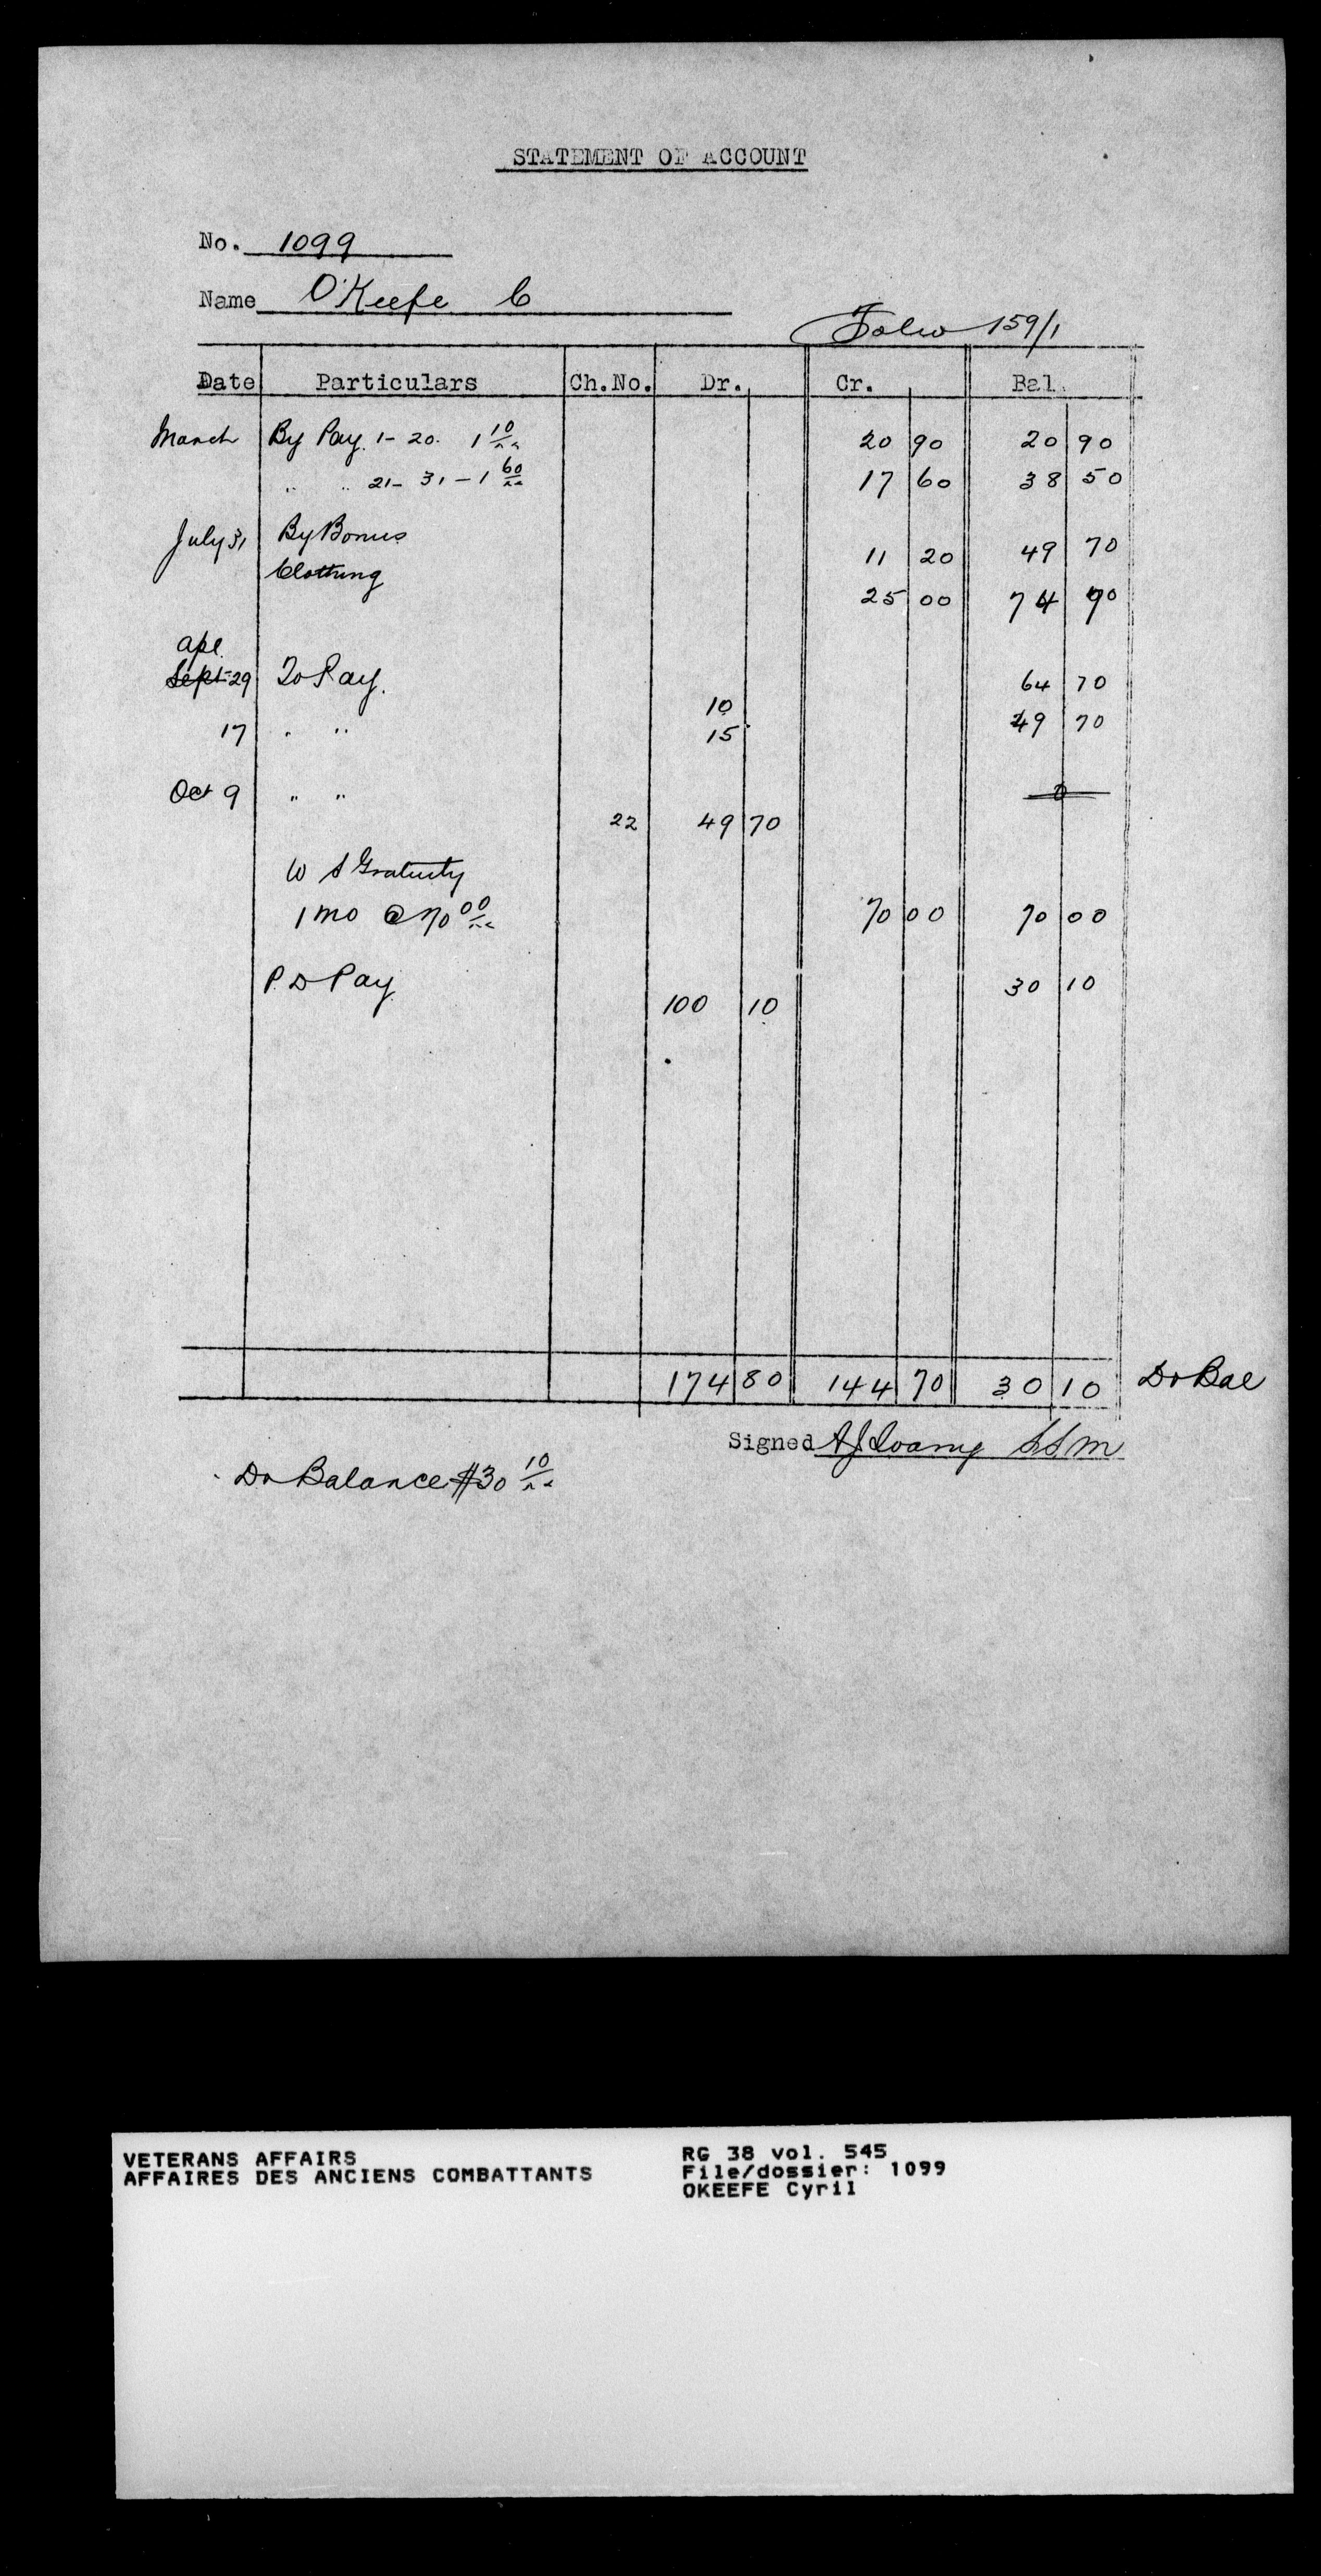 STATEMENT OF ACCOUNT
No. 1099
Name O'Keefe C
Folio 159/1
Date Particulars Ch.No. Dr. Cr. Bal.
March By Pay 1-20. 1 10/xx 20 90 20 90
" " 21-31-1 60/xx 17 60 38 50
July 31 By Bonus 11 20 49 70
Clothing 25 00 74 70
Apl.
Sept 29 To Pay. 10 64 70
17 " " 15 49 70
Oct 9 " " 22 49 70 0
W S Gratuity
1 mo @ 70 00/xx 70 00 70 00
P.D Pay 100 10 30 10
174 80 144 70 30 10 Dr Bal
Signed
Dr Balance $30 10/xx
VETERANS AFFAIRS
AFFAIRES DES ANCIENS COMBATTANTS
RG 38 vol. 545
File/dossier: 1099
OKEEFE Cyril